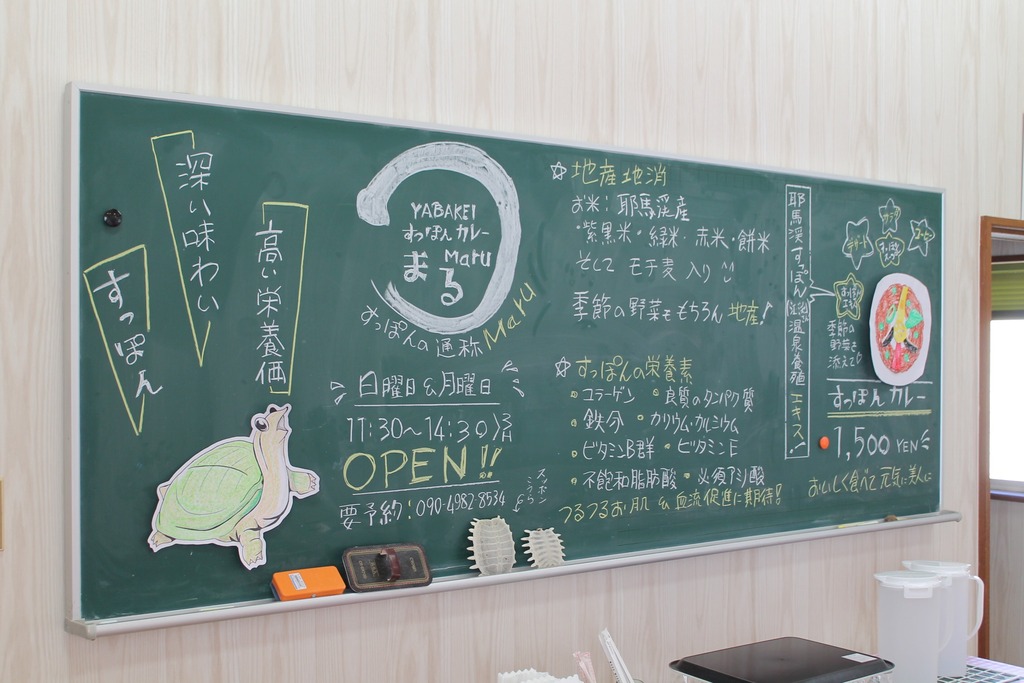 すっぽん
深い味わい
高い栄養価
YABAKEI
すっぽんカレー
まる Maru
すっぽんの通称 Maru
日曜日&月曜日
11:30〜14:30
OPEN!!
要予約:090-4982-8534
スッポン
こうら
☆地産地消
お米:耶馬渓産
・紫黒米・緑米・赤米・餅米
そして モチ麦 入り
季節の野菜ももちろん 地産!
☆すっぽんの栄養素
・コラーゲン ・良質のタンパク質
・鉄分 ・カリウム・カルシウム
・ビタミンB群 ・ビタミンE
・不飽和脂肪酸 ・必須アミノ酸
つるつるお肌 & 血流促進に期待!
耶馬渓すっぽん 温泉養殖 エキス!
サラダ
デザート
コーヒー
季節の
野菜を
添えて
すっぽんカレー
1,500 YEN
おいしく食べて元気に美人に